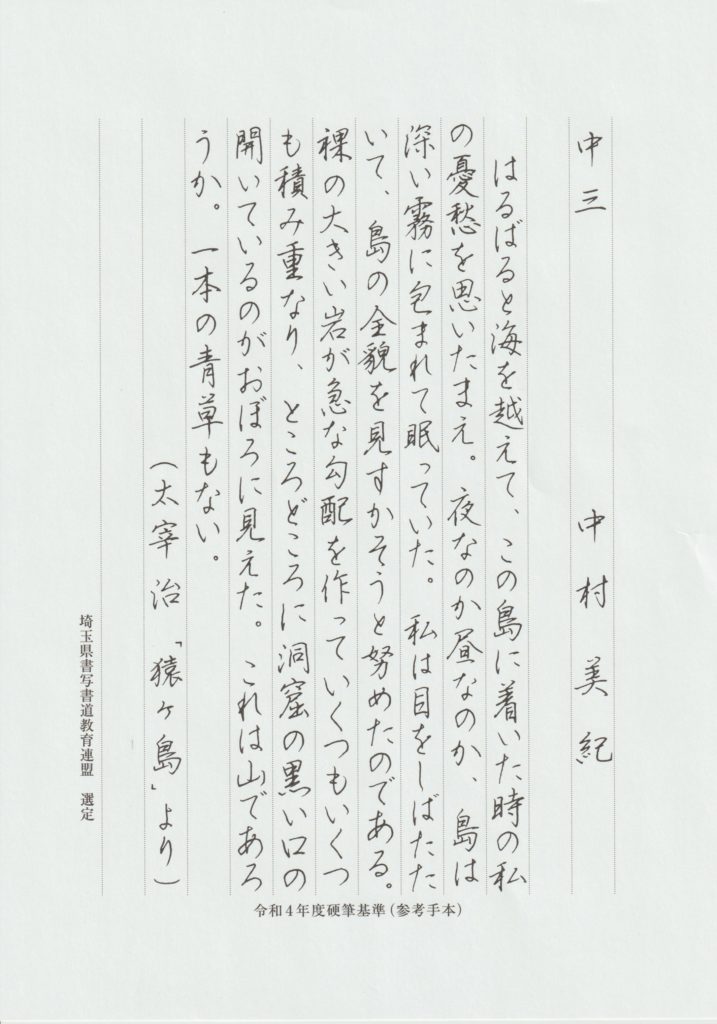 中三 中村美紀
はるばると海を越えて、この島に着いた時の私
の憂愁を思いたまえ。夜なのか昼なのか、島は
深い霧に包まれて眠っていた。私は目をしばたた
いて、島の全貌を見すかそうと努めたのである。
裸の大きい岩が急な勾配を作っていくつもいくつ
も積み重なり、ところどころに洞窟の黒い口の
開いているのがおぼろに見えた。これは山であろ
うか。一本の青草もない。
(太宰治「猿ヶ島」より)
埼玉県書写書道教育連盟 選定
令和4年度硬筆基準(参考手本)